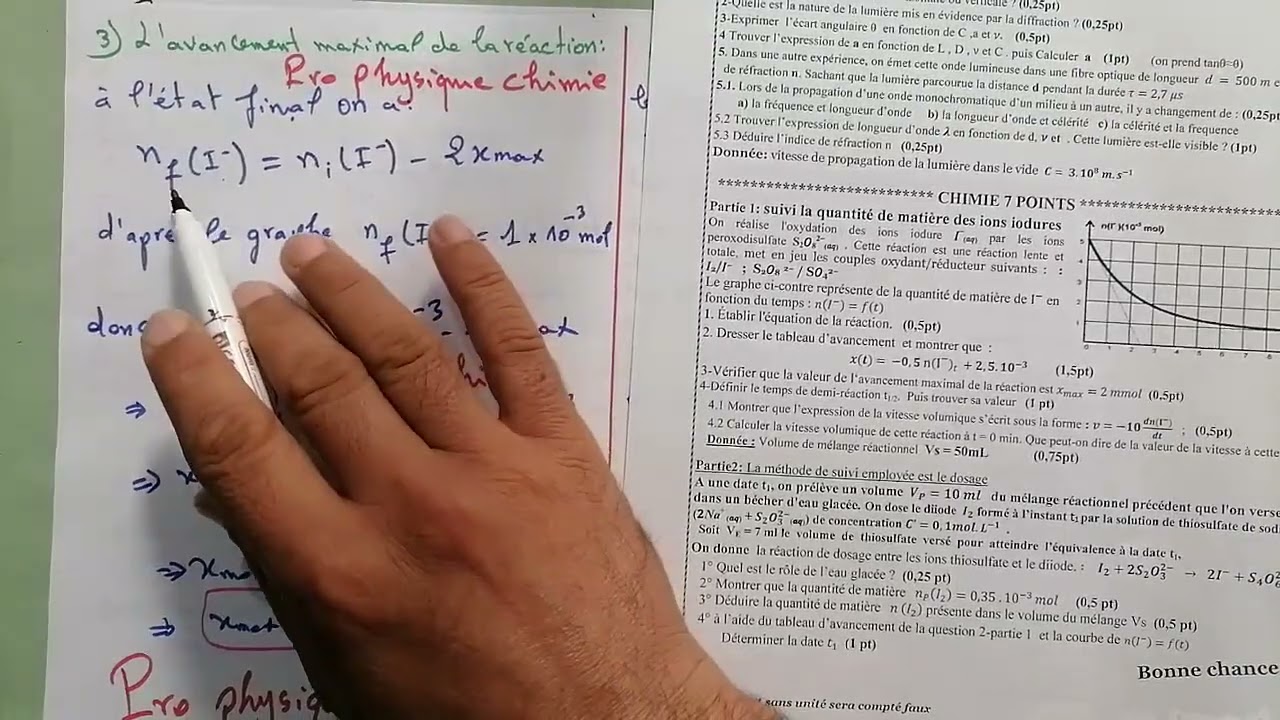 3) L'avancement maximal de la réaction:
Pro physique chimie
à l'état final on a:
n_f(I⁻) = n_i(I⁻) - 2xmax
d'après le graphe n_f(I = 1 x 10⁻³ mol
donc
⇒
⇒ x
⇒ xma
⇒ xmax
Pro physiq
2-Quelle est la nature de la lumière mis en évidence par la diffraction ? (0,25pt)
3-Exprimer l'écart angulaire θ en fonction de C ,a et ν. (0,5pt)
4 Trouver l'expression de a en fonction de L , D , ν et C . puis Calculer a (1pt) (on prend tanθ=θ)
5. Dans une autre expérience, on émet cette onde lumineuse dans une fibre optique de longueur d = 500 m
de réfraction n. Sachant que la lumière parcourue la distance d pendant la durée τ = 2,7 μs
5.1. Lors de la propagation d'une onde monochromatique d'un milieu à un autre, il y a changement de : (0,25pt
a) la fréquence et longueur d'onde b) la longueur d'onde et célérité c) la célérité et la frequence
5.2 Trouver l'expression de longueur d'onde λ en fonction de d, ν et . Cette lumière est-elle visible ? (1pt)
5.3 Déduire l'indice de réfraction n (0,25pt)
Donnée: vitesse de propagation de la lumière dans le vide C = 3.10⁸ m.s⁻¹
*************************** CHIMIE 7 POINTS ********************
Partie 1: suivi la quantité de matière des ions iodures
On réalise l'oxydation des ions iodure I⁻(aq) par les ions
peroxodisulfate S₂O₈²⁻(aq) . Cette réaction est une réaction lente et
totale, met en jeu les couples oxydant/réducteur suivants : :
I₂/I⁻ ; S₂O₈ ²⁻/ SO₄²⁻
Le graphe ci-contre représente de la quantité de matière de I⁻ en
fonction du temps : n(I⁻) = f(t)
n(I⁻)(×10⁻³ mol)
5
4
3
2
1
0 1 2 3 4 5 6 7 8
1. Établir l'équation de la réaction. (0,5pt)
2. Dresser le tableau d'avancement et montrer que :
x(t) = −0,5 n(I⁻)ₜ + 2,5.10⁻³ (1,5pt)
3-Vérifier que la valeur de l'avancement maximal de la réaction est xₘₐₓ = 2 mmol (0,5pt)
4-Définir le temps de demi-réaction t₁/₂. Puis trouver sa valeur (1 pt)
4.1 Montrer que l'expression de la vitesse volumique s'écrit sous la forme : v = −10 dn(I⁻)/dt ; (0,5pt)
4.2 Calculer la vitesse volumique de cette réaction à t = 0 min. Que peut-on dire de la valeur de la vitesse à cette
Donnée : Volume de mélange réactionnel Vs = 50mL (0,75pt)
Partie2: La méthode de suivi employée est le dosage
A une date t₁, on prélève un volume V_P = 10 ml du mélange réactionnel précédent que l'on verse
dans un bécher d'eau glacée. On dose le diiode I₂ formé à l'instant t₁ par la solution de thiosulfate de sod
(2Na⁺(aq) + S₂O₃²⁻(aq)) de concentration C' = 0,1mol. L⁻¹ .
Soit V_E = 7 ml le volume de thiosulfate versé pour atteindre l'équivalence à la date t₁.
On donne la réaction de dosage entre les ions thiosulfate et le diiode. : I₂ + 2S₂O₃²⁻ → 2I⁻ + S₄O₆
1° Quel est le rôle de l'eau glacée ? (0,25 pt)
2° Montrer que la quantité de matière n_P(I₂) = 0,35. 10⁻³ mol (0,5 pt)
3° Déduire la quantité de matière n (I₂) présente dans le volume du mélange Vs (0,5 pt)
4° à l'aide du tableau d'avancement de la question 2-partie 1 et la courbe de n(I⁻) = f(t)
Déterminer la date t₁ (1 pt)
Bonne chance
sans unité sera compté faux